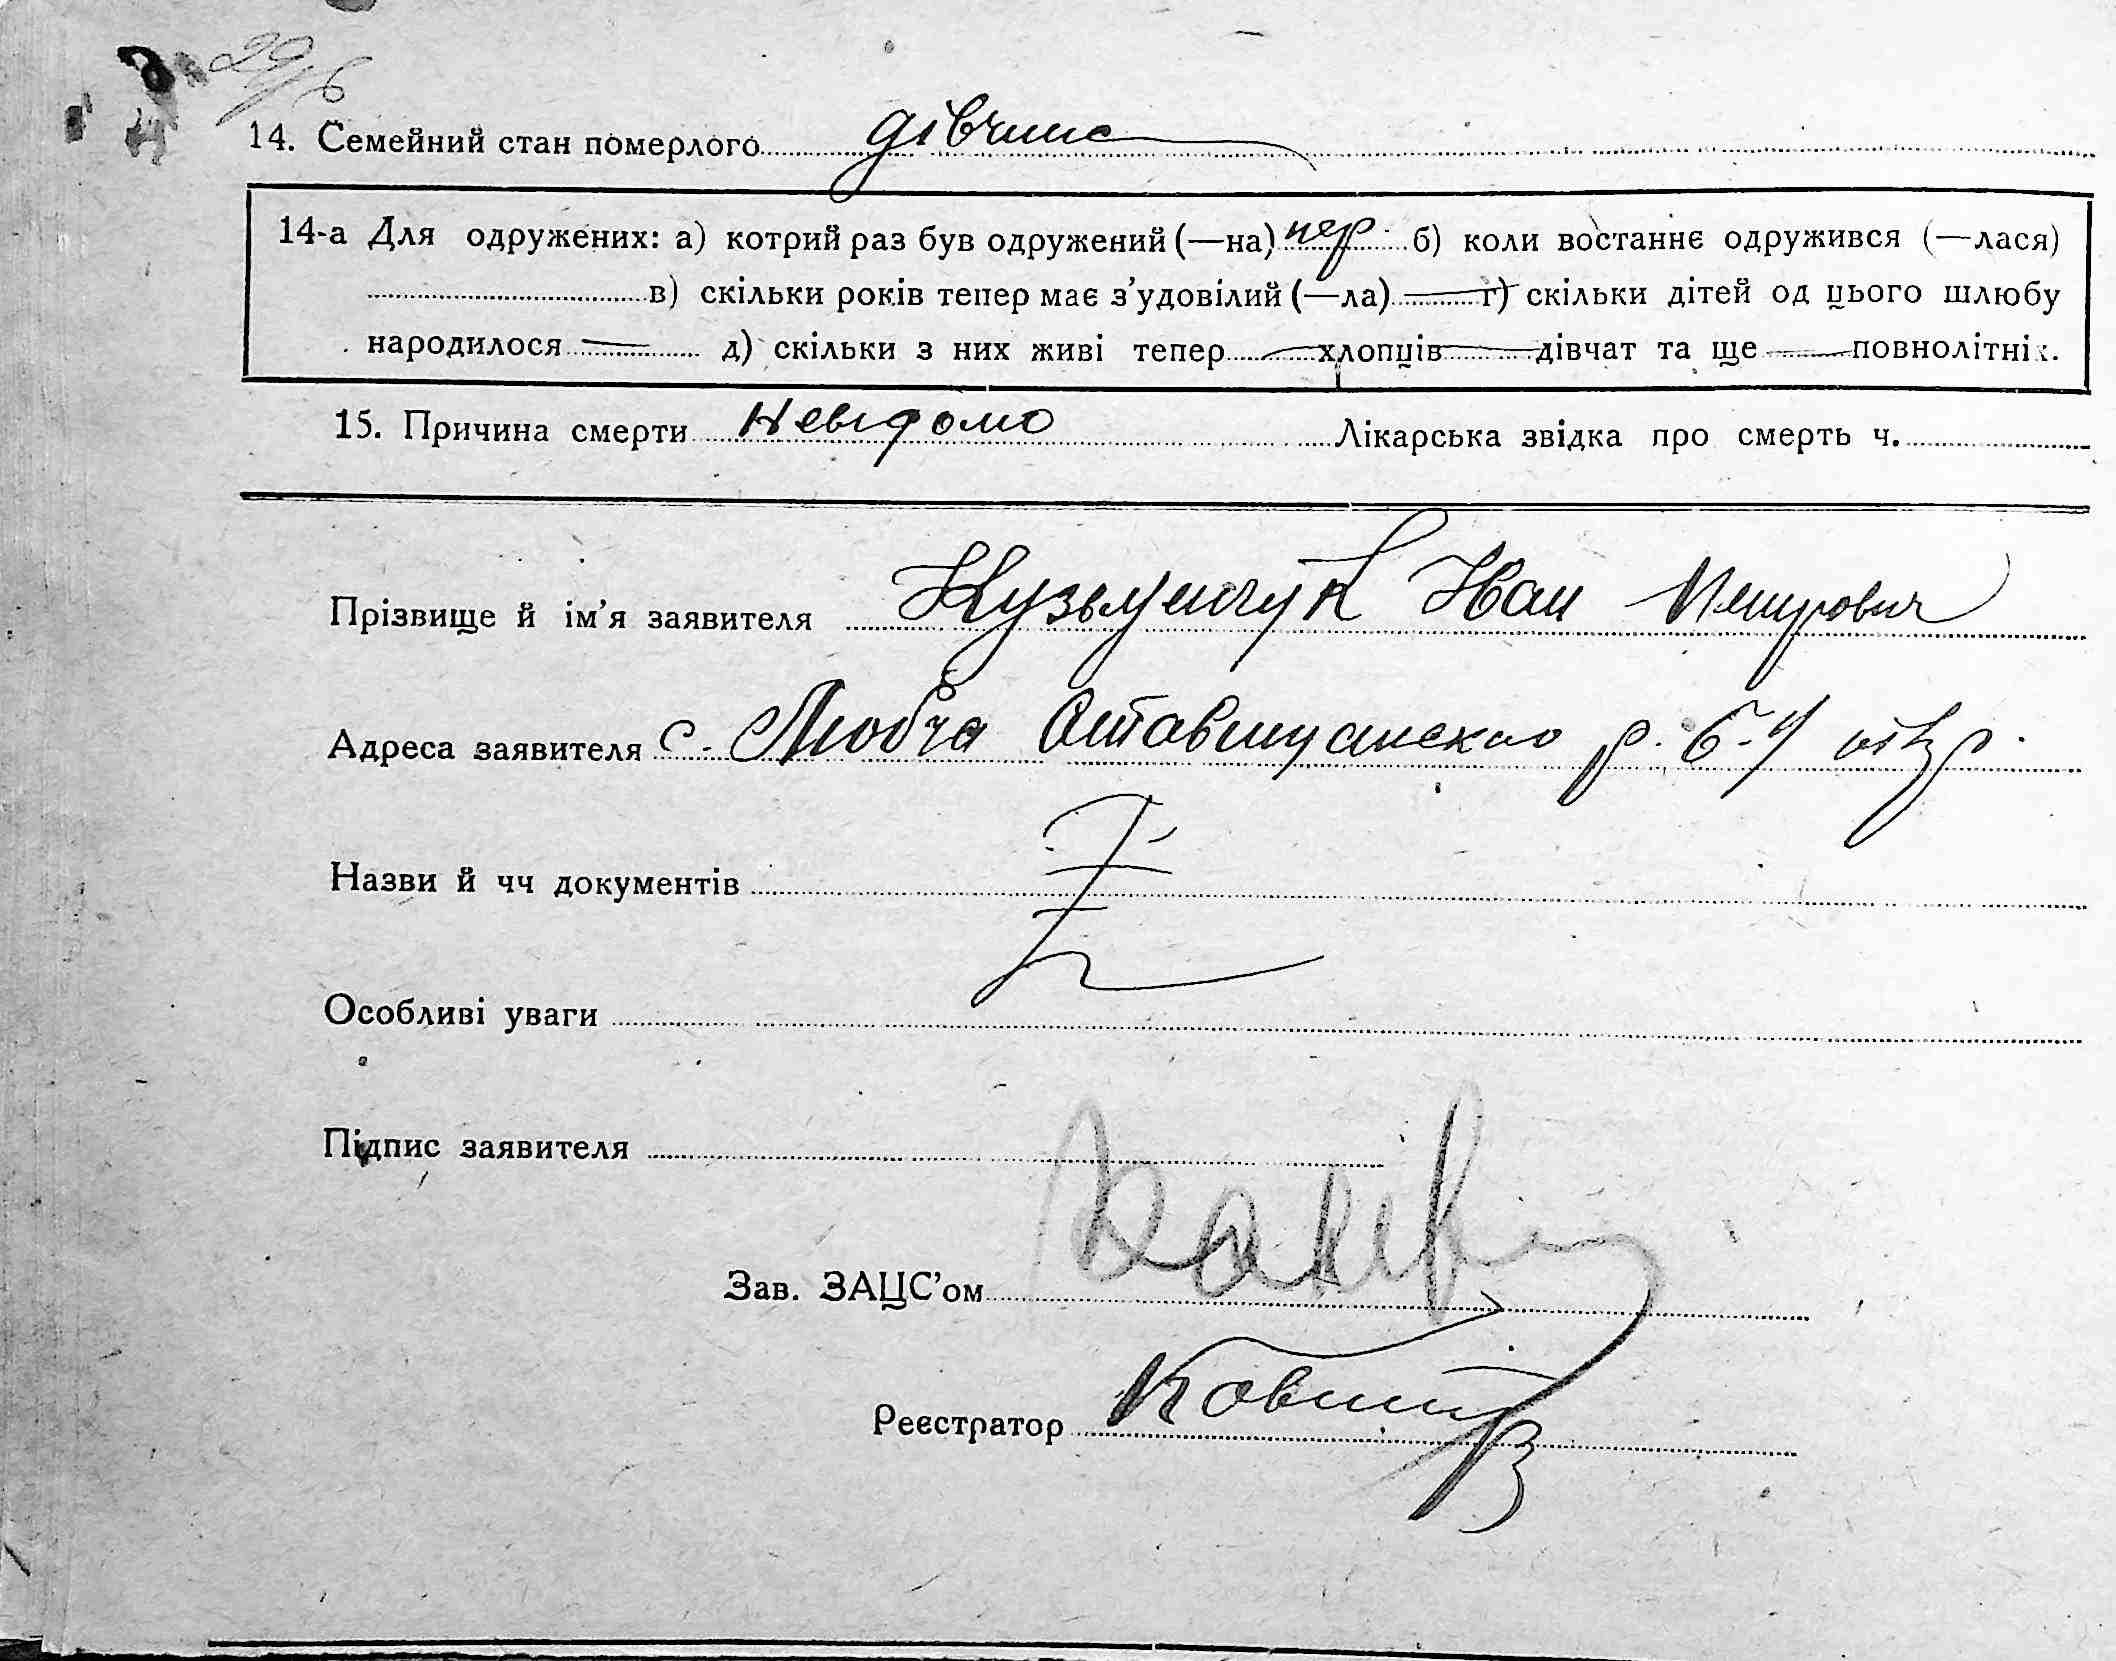 29/6
14. Семейний стан померлого дівчина
14-а Для одружених: а) котрий раз був одружений (—на) пер. б) коли востаннє одружився (—лася)
в) скільки років тепер має з’удовілий (—ла) г) скільки дітей од цього шлюбу
народилося д) скільки з них живі тепер хлопців дівчат та ще повнолітніх.
15. Причина смерти Невідомо Лікарська звідка про смерть ч.
Прізвище й ім’я заявителя Кузьменчук Иван Петрович
Адреса заявителя с. Любча
Назви й чч документів
Особливі уваги
Підпис заявителя
Зав. ЗАЦС’ом
Реєстратор